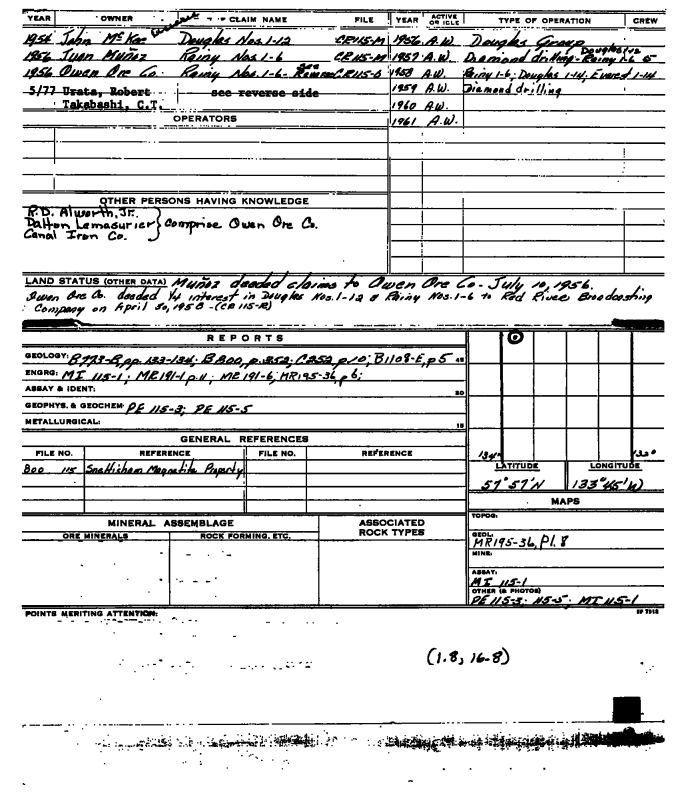 YEAR OWNER CLAIM NAME FILE YEAR ACTIVE OR IDLE TYPE OF OPERATION CREW
1954 John McKae Douglas Nos. 1-12 CR115-M 1956 A.W. Douglas Group
1956 Juan Muñoz Rainy Nos 1-6 CR115-M 1957 A.W. Diamond drilling - Rainy 1-6 Douglas 1-12 5
1956 Owen Ore Co. Rainy Nos. 1-6 - see Reverse CR115-D 1958 A.W. Rainy 1-6; Douglas 1-14; 1-14
5/77 Urata, Robert see reverse side 1959 A.W. Diamond drilling
Takabashi, C.T. 1960 A.W.
OPERATORS 1961 A.W.
OTHER PERSONS HAVING KNOWLEDGE
R.D. Alworth, Jr.
Dalton Lemasurier } comprise Owen Ore Co.
Canal Iron Co.
LAND STATUS (OTHER DATA) Muñoz deeded claims to Owen Ore Co - July 10, 1956.
Owen Ore Co. deeded 1/4 interest in Douglas Nos. 1-12 & Rainy Nos. 1-6 to Red River Broadcasting
Company on April 30, 1958 - (CR 115-R)
REPORTS
GEOLOGY: B773-B, pp. 133-134; B800, p. 352; C252 p10; B1108-E, p5 45
ENGRG: MI 115-1; MR191-1 p.11; MR 191-6; MR195-36, p6;
ASSAY & IDENT: 30
GEOPHYS. & GEOCHEM: PE 115-3; PE 115-5
METALLURGICAL: 15
134° 133°
LATITUDE LONGITUDE
57°57'N 133°45'W
GENERAL REFERENCES
FILE NO. REFERENCE FILE NO. REFERENCE
800 115 Snettisham Magnetite Property
MAPS
TOPOG:
GEOL: MR195-36, Pl. 8
MINE:
ASSAY: MI 115-1
OTHER (& PHOTOS) PE 115-3; 115-5; MI 115-1
MINERAL ASSEMBLAGE ASSOCIATED ROCK TYPES
ORE MINERALS ROCK FORMING, ETC.
POINTS MERITING ATTENTION:
(1.8, 16.8)